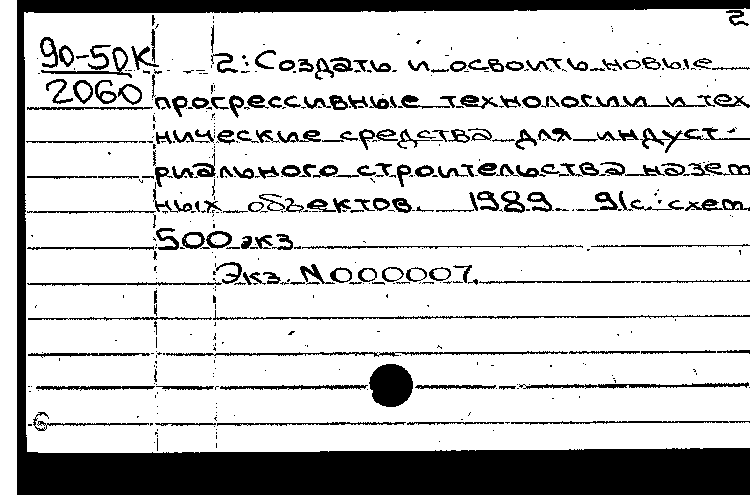 2
90-5DK
2060
2: Создать и освоить новые
прогрессивные технологии и тех
нические средства для индуст-
риального строительства назем
ных объектов. 1989. 91с: схем.
500 экз
Экз. N000007.
6